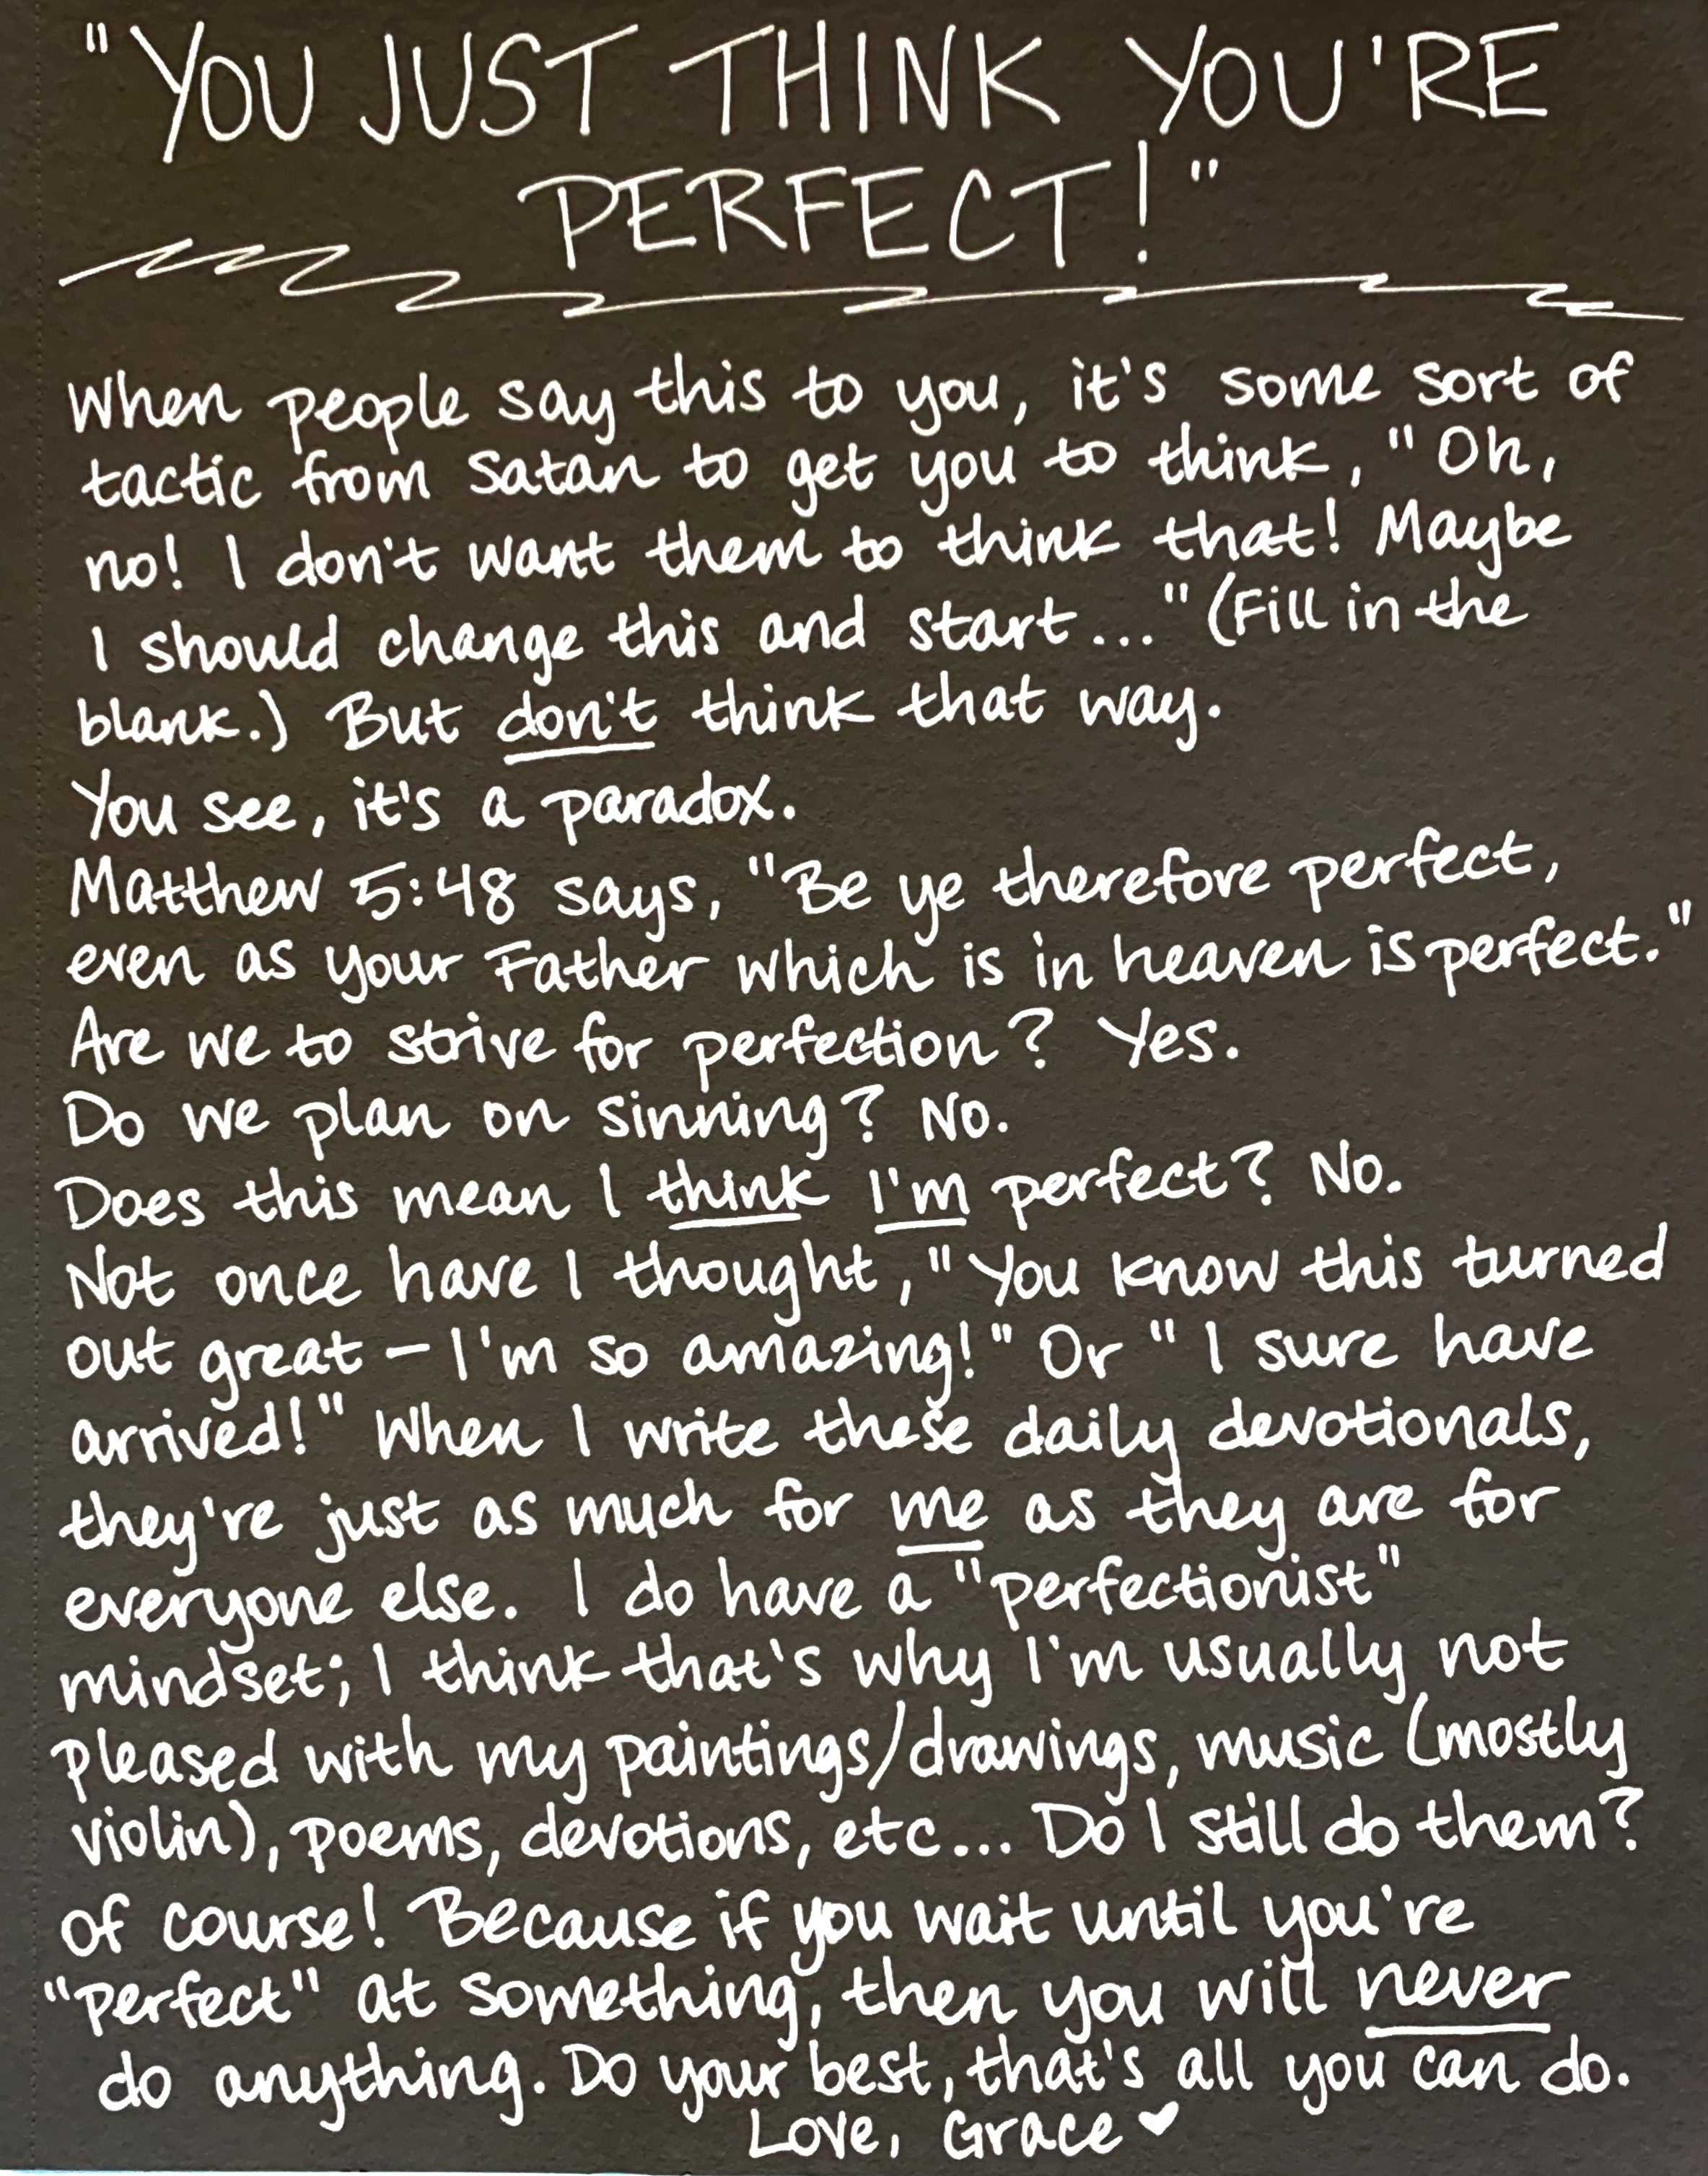 "YOU JUST THINK YOU'RE
PERFECT!"
When people say this to you, it's some sort of
tactic from Satan to get you to think, "Oh,
no! I don't want them to think that! Maybe
I should change this and start..." (Fill in the
blank.) But don't think that way.
You see, it's a paradox.
Matthew 5:48 says, "Be ye therefore perfect,
even as your Father which is in heaven is perfect."
Are we to strive for perfection? Yes.
Do we plan on sinning? No.
Does this mean I think I'm perfect? No.
Not once have I thought, "You know this turned
out great - I'm so amazing!" Or "I sure have
arrived!" When I write these daily devotionals,
they're just as much for me as they are for
everyone else. I do have a "perfectionist"
mindset; I think that's why I'm usually not
pleased with my paintings/drawings, music (mostly
violin), poems, devotions, etc... Do I still do them?
Of course! Because if you wait until you're
"perfect" at something, then you will never
do anything. Do your best, that's all you can do.
Love, Grace ♥